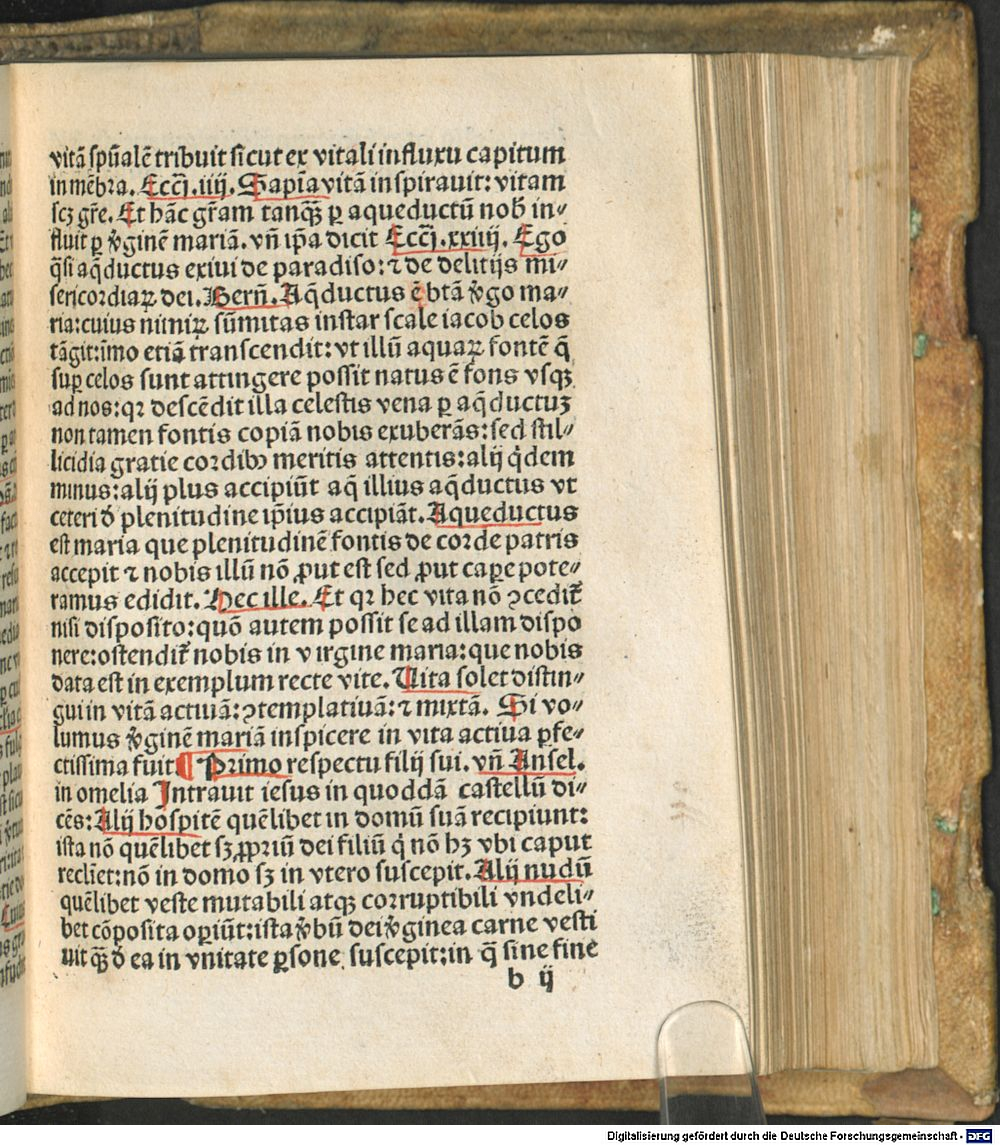 vitã spũalẽ tribuit sicut ex vitali influxu capitum
in mẽbra. Eccĩ. iiij. Sapiã vitã inspirauit: vitam
scꝫ gr̃e. Et hãc gr̃am tanqȝ̃ ꝑ aqueductũ nob̃ in⸗
fluit ꝑ v̾ginẽ mariã. vñ ip̃a dicit Eccĩ. xxiiij. Ego
q̃si aq̃ductus exiui de paradiso: ⁊ de delitijs mi⸗
sericordiaꝝ dei. Berñ. Aq̃ductus ẽ btã v̾go ma⸗
ria: cuius nimiꝝ sũmitas instar scale iacob celos
tãgit: imo etiã transcendit: vt illũ aquaꝝ fontẽ q̃
suꝑ celos sunt attingere possit natus ẽ fons vsqꝫ
ad nos: qꝛ descẽdit illa celestis vena ꝑ aq̃ductuꝫ
non tamen fontis copiã nobis exuberãs: sed stil⸗
licidia gratie cordibꝰ meritis attentis: alij q̇dem
minus: alij plus accipiũt aq̃ illius aq̃ductus vt
ceteri d̾ plenitudine ip̃ius accipiãt. Aqueductus
est maria que plenitudinẽ fontis de corde patris
accepit ⁊ nobis illũ nõ ꝓut est sed ꝓut caꝑe pote⸗
ramus edidit. Hec ille. Et qꝛ hec vita nõ ꝯcedit᷑
nisi disposito: quõ autem possit se ad illam dispo
nere: ostendit᷑ nobis in virgine maria: que nobis
data est in exemplum recte vite. Uita solet distin⸗
gui in vitã actiuã: ꝯtemplatiuã: ⁊ mixtã. Si vo⸗
lumus v̾ginẽ mariã inspicere in vita actiua ꝑfe⸗
ctissima fuit ¶ Primo respectu filij sui. vñ Ansel.
in omelia Intrauit iesus in quoddã castellũ di⸗
cẽs: Alij hospitẽ quẽlibet in domũ suã recipiunt:
ista nõ quẽlibet sꝫ ꝓpriũ dei filiũ q̇ nõ hꝫ vbi caput
recliet: nõ in domo sꝫ in vtero suscepit. Alij nudũ
quẽlibet veste mutabili atqꝫ corruptibili vndeli⸗
bet cõposita oꝑiũt: ista v̾bũ dei v̾ginea carne vesti
uit qȝ̃ d̾ ea in vnitate ꝑsone suscepit: in q̃ sine fine
b ij
Digitalisierung gefördert durch die Deutsche Forschungsgemeinschaft - DFG